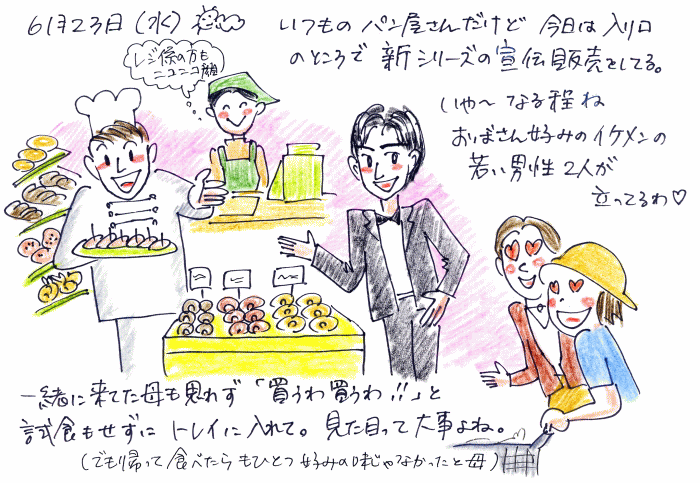 6月23日(水)
いつものパン屋さんだけど 今日は入り口
のところで 新シリーズの宣伝販売をしてる。
レジ係の方も
ニコニコ顔
いや〜 なる程ね
おばさん好みのイケメンの
若い男性2人が
立ってるわ♡
一緒に来てた母も思わず「買うわ買うわ!!」と
試食もせずに トレイに入れて。見た目って大事よね。
(でも帰って食べたら もひとつ好みの味じゃなかったと母)